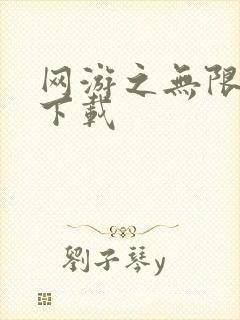 网游之無限
下載
劉子琴y